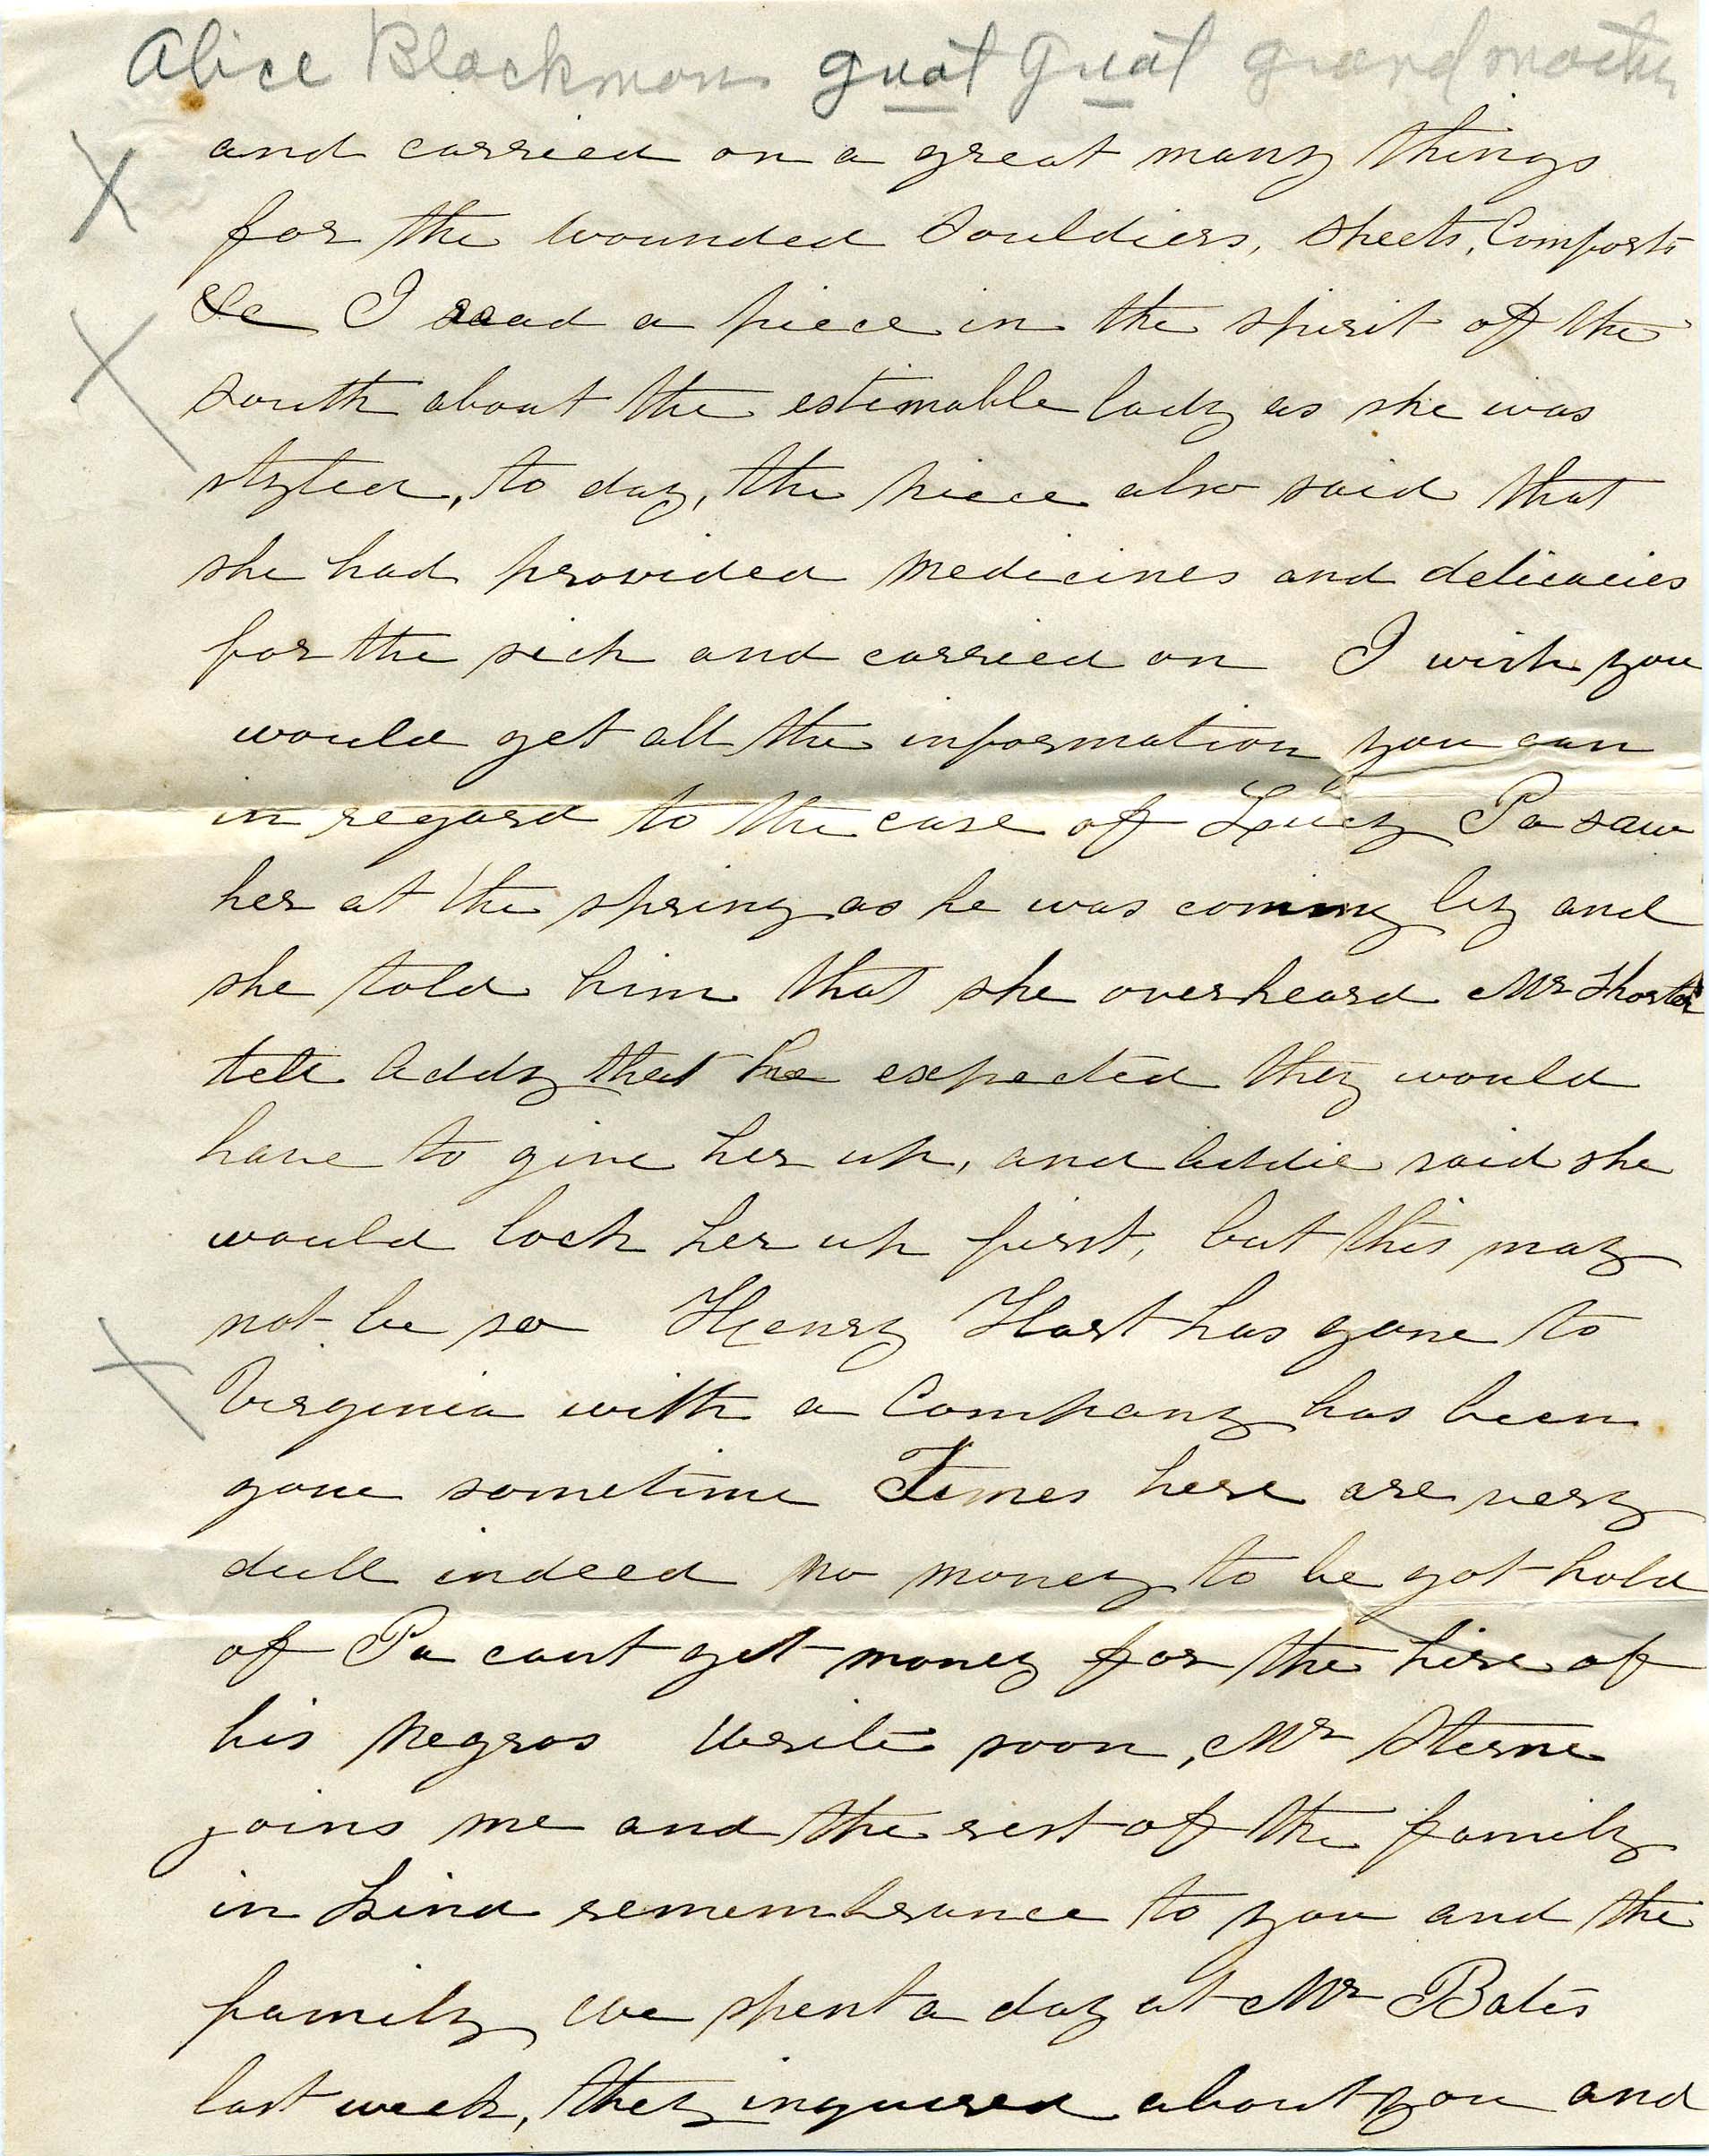 Alice Blackmon great great grandmother
and carried on a great many things
for the wounded Souldiers, sheets, Comforts
&c I read a piece in the spirit of the
South about the estimable lady as she was
styled, to day, the piece also said that
she had provided medicines and delicacies
for the sick and carried on I wish you
would get all the information you can
in regard to the case of Lucy Pa saw
her at the spring as he was coming by and
she told him that she overheard Mr Shorter
tell Addy that he expected they would
have to give her up, and Addie said she
would lock her up first, but this may
not be so Henry Hart has gone to
Virginia with a Company has been
gone sometime Times here are very
dull indeed no money to be got hold
of Pa cant get money for the hire of
his negros Write soon, Mr Sterne
joins me and the rest of the family
in kind remembrance to you and the
family, we spent a day at Mr Bates
last week, they inquired about you and